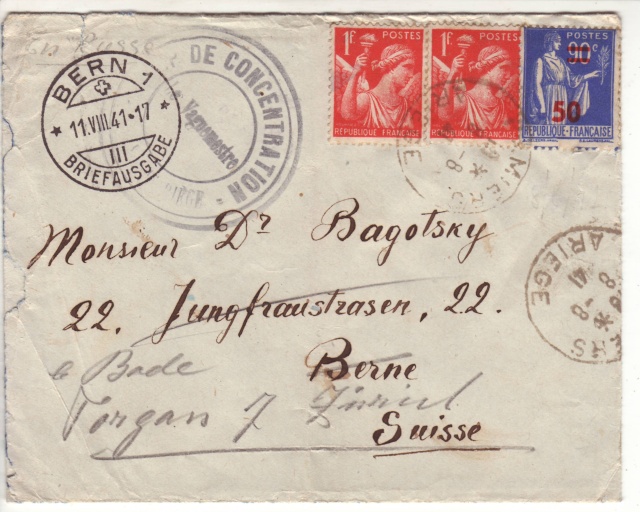 En Russe
DE CONCENTRATION
Vaguemestre
ARIÈGE
BERN 1
11.VIII.41-17
III
BRIEFAUSGABE
1F POSTES
RÉPUBLIQUE FRANÇAISE
1F POSTES
RÉPUBLIQUE FRANÇAISE
POSTES
90c
50
REPUBLIQUE-FRANÇAISE
MIERS
ARIEGE
8 -8
41
Monsieur Dr Bagotsky
22. Jungfraustrasen, 22.
Berne
Bade
Torgan 7 Zürich
Suisse